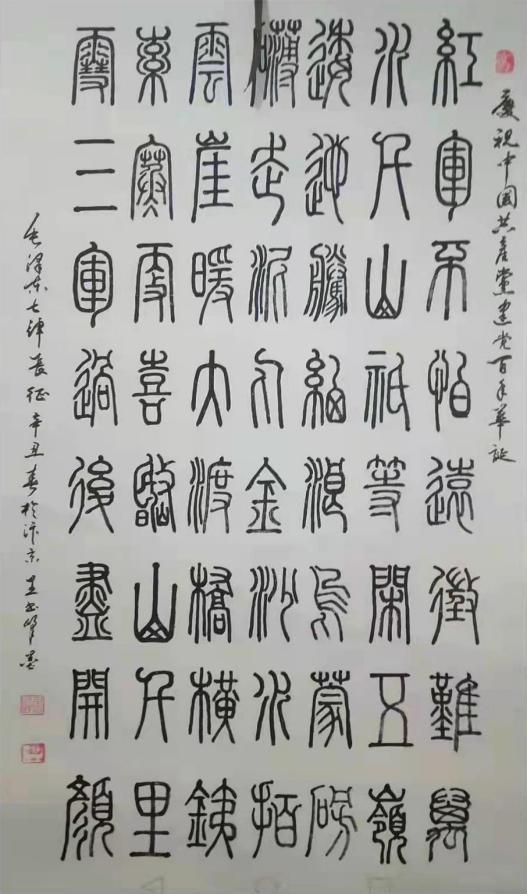 慶祝中國共產黨建党百年華誕
紅軍不怕遠徵難萬
水千山祇等閑五嶺
逶迤騰細浪烏蒙磅
礴走泥丸金沙水拍
雲崖暖大渡橋橫鐵
索寒更喜岷山千里
雪三軍過後盡開顏
毛澤東七律長征辛丑春於汴京